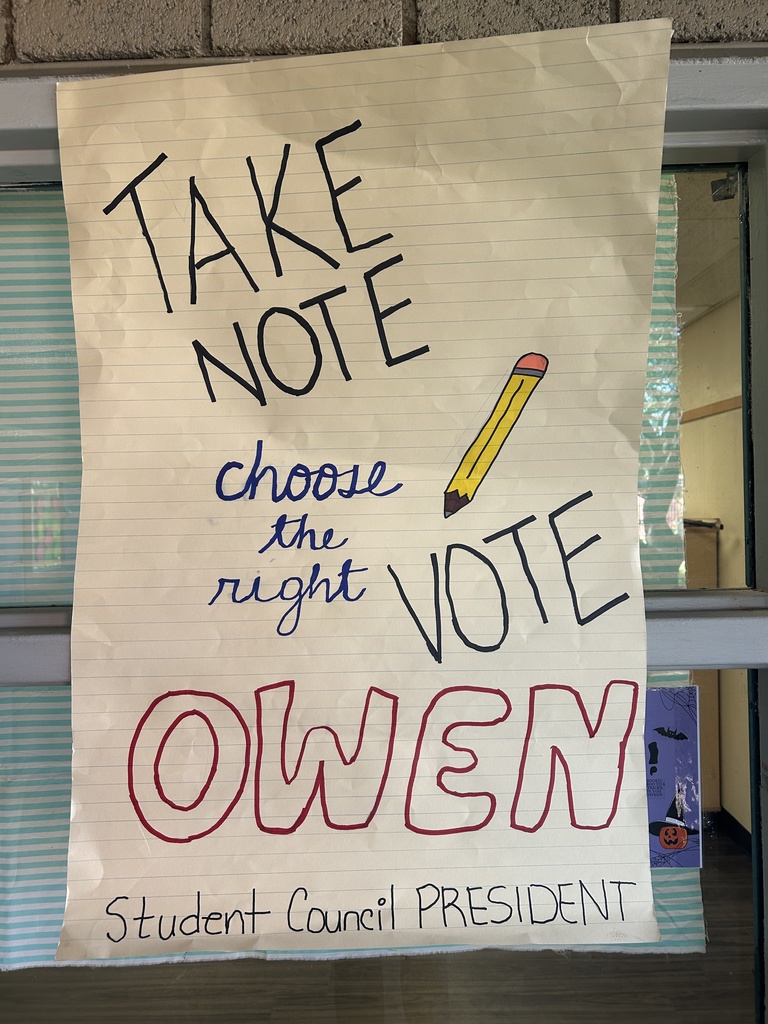 TAKE
NOTE
choose
the
right
VOTE
OWEN
Student Council PRESIDENT